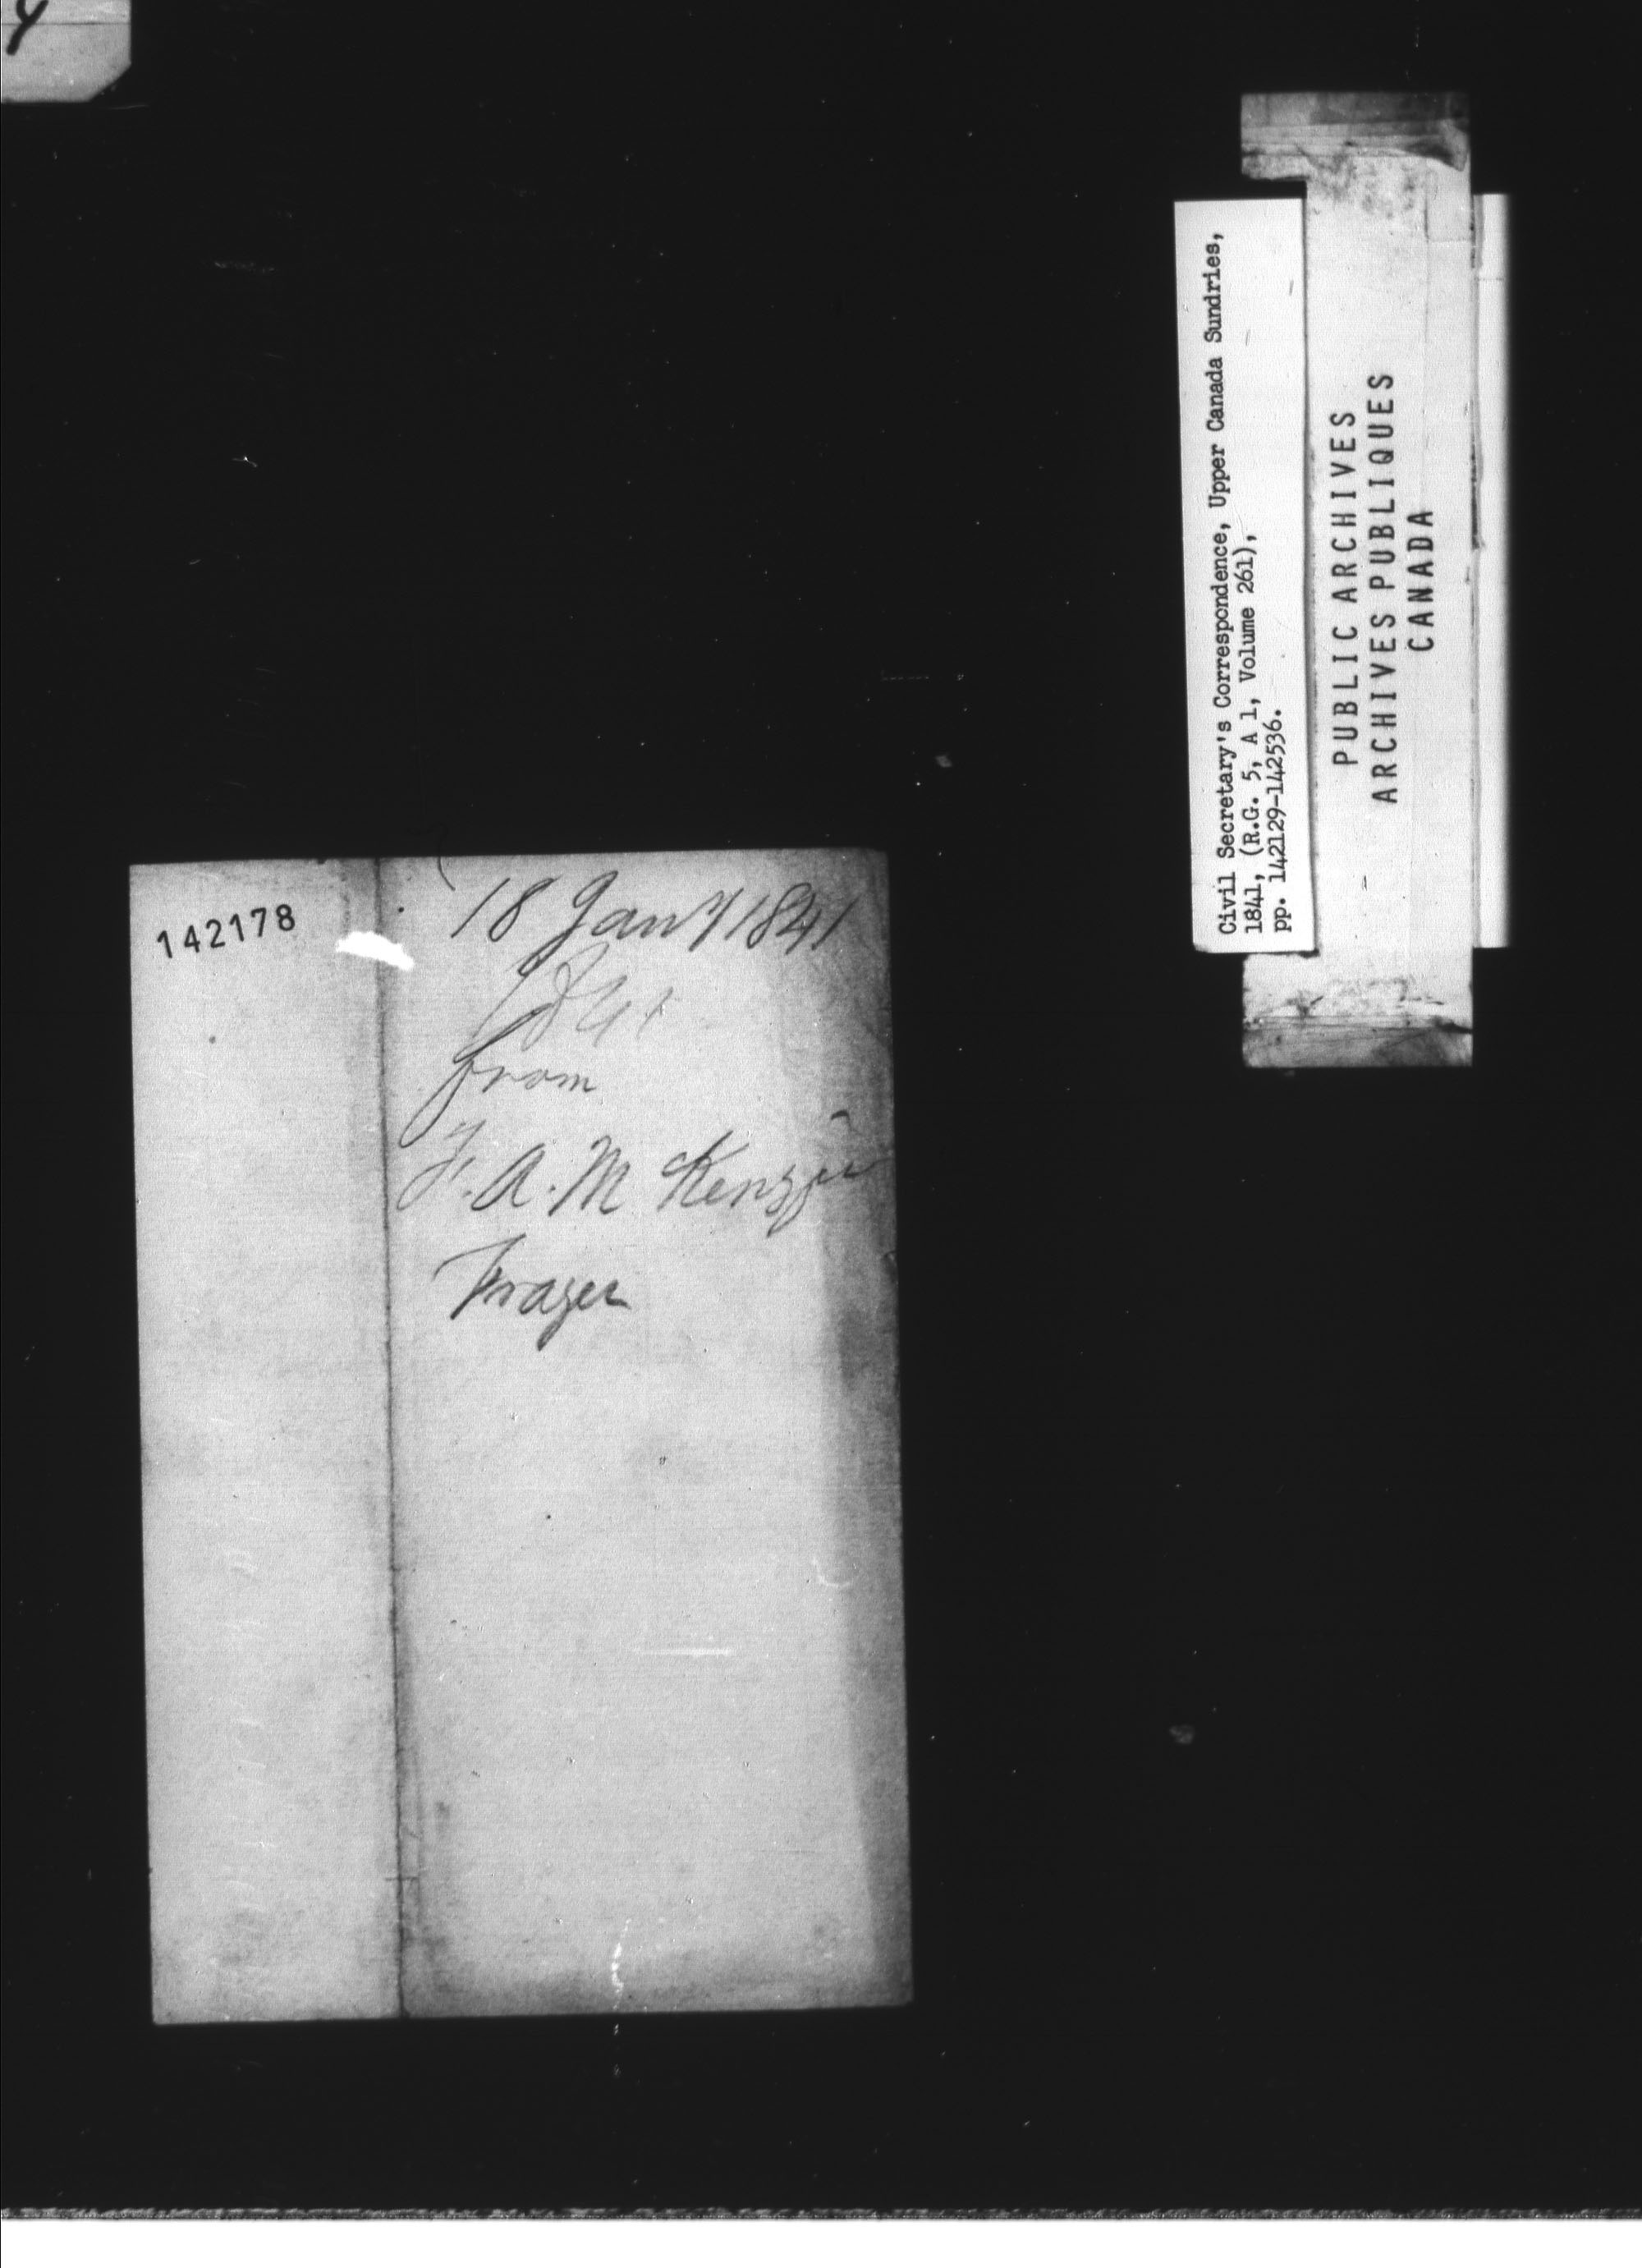 142178
18 Jany 1841
1841
from
F. A. M Kenzie
Frazer
Civil Secretary's Correspondence, Upper Canada Sundries,
1841, (R.G. 5, A 1, Volume 261),
pp. 142129-142536.
PUBLIC ARCHIVES
ARCHIVES PUBLIQUES
CANADA